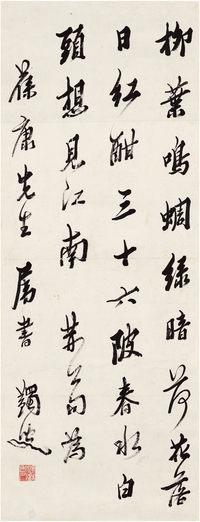 柳葉鳴蜩綠暗荷花落
日紅酣三十六陂春水白
頭想見江南 荊公句為
葆康先生属書 蠲叟